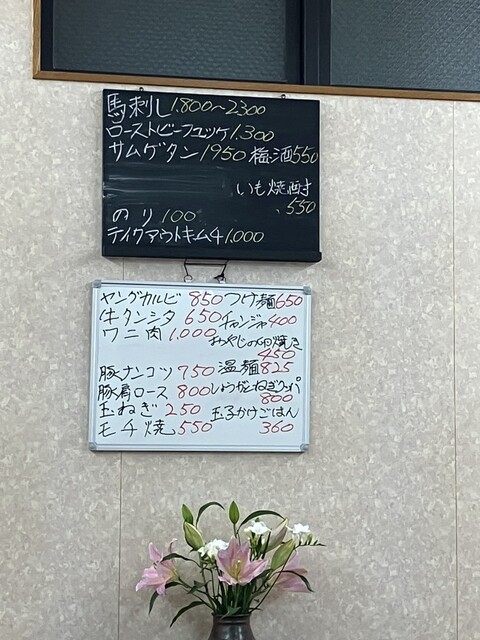 馬刺し 1.800〜2300
ローストビーフユッケ 1.300
サムゲタン 1950 梅酒 550
いも焼酎
.550
のり 100
テイクアウトキムチ 1.000
ヤングカルビ 850 つけ麺 650
牛タンシタ 650 チャンジャ 400
ワニ肉 1.000 おやじの卵焼き
450
豚ナンコツ 750 温麺 825
豚肩ロース 800 しょうがとねぎクッパ
800
玉ねぎ 250 玉子かけごはん
モチ焼 550 360